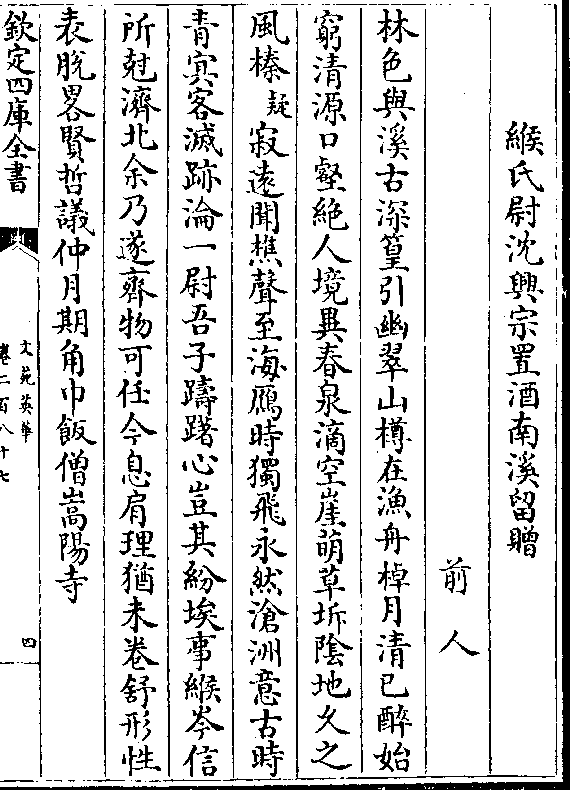 緱氏尉沈興宗置酒南溪留贈
前人
林色與溪古深篁引幽翠山樽在漁舟棹月清已醉始
窮清源口壑絶人境異春泉滴空崖萌草坼陰地久之
風榛疑寂遠聞樵聲至海鴈時獨飛永然滄洲意古時
青㝠客滅跡淪一尉吾子躊躇心豈其紛埃事緱岑信
所尅濟北余乃遂齊物可任今息肩理猶未卷舒形性
表脫畧賢哲議仲月期角巾飯僧嵩陽寺
欽定四庫全書
文苑英華
卷二百八十七
四